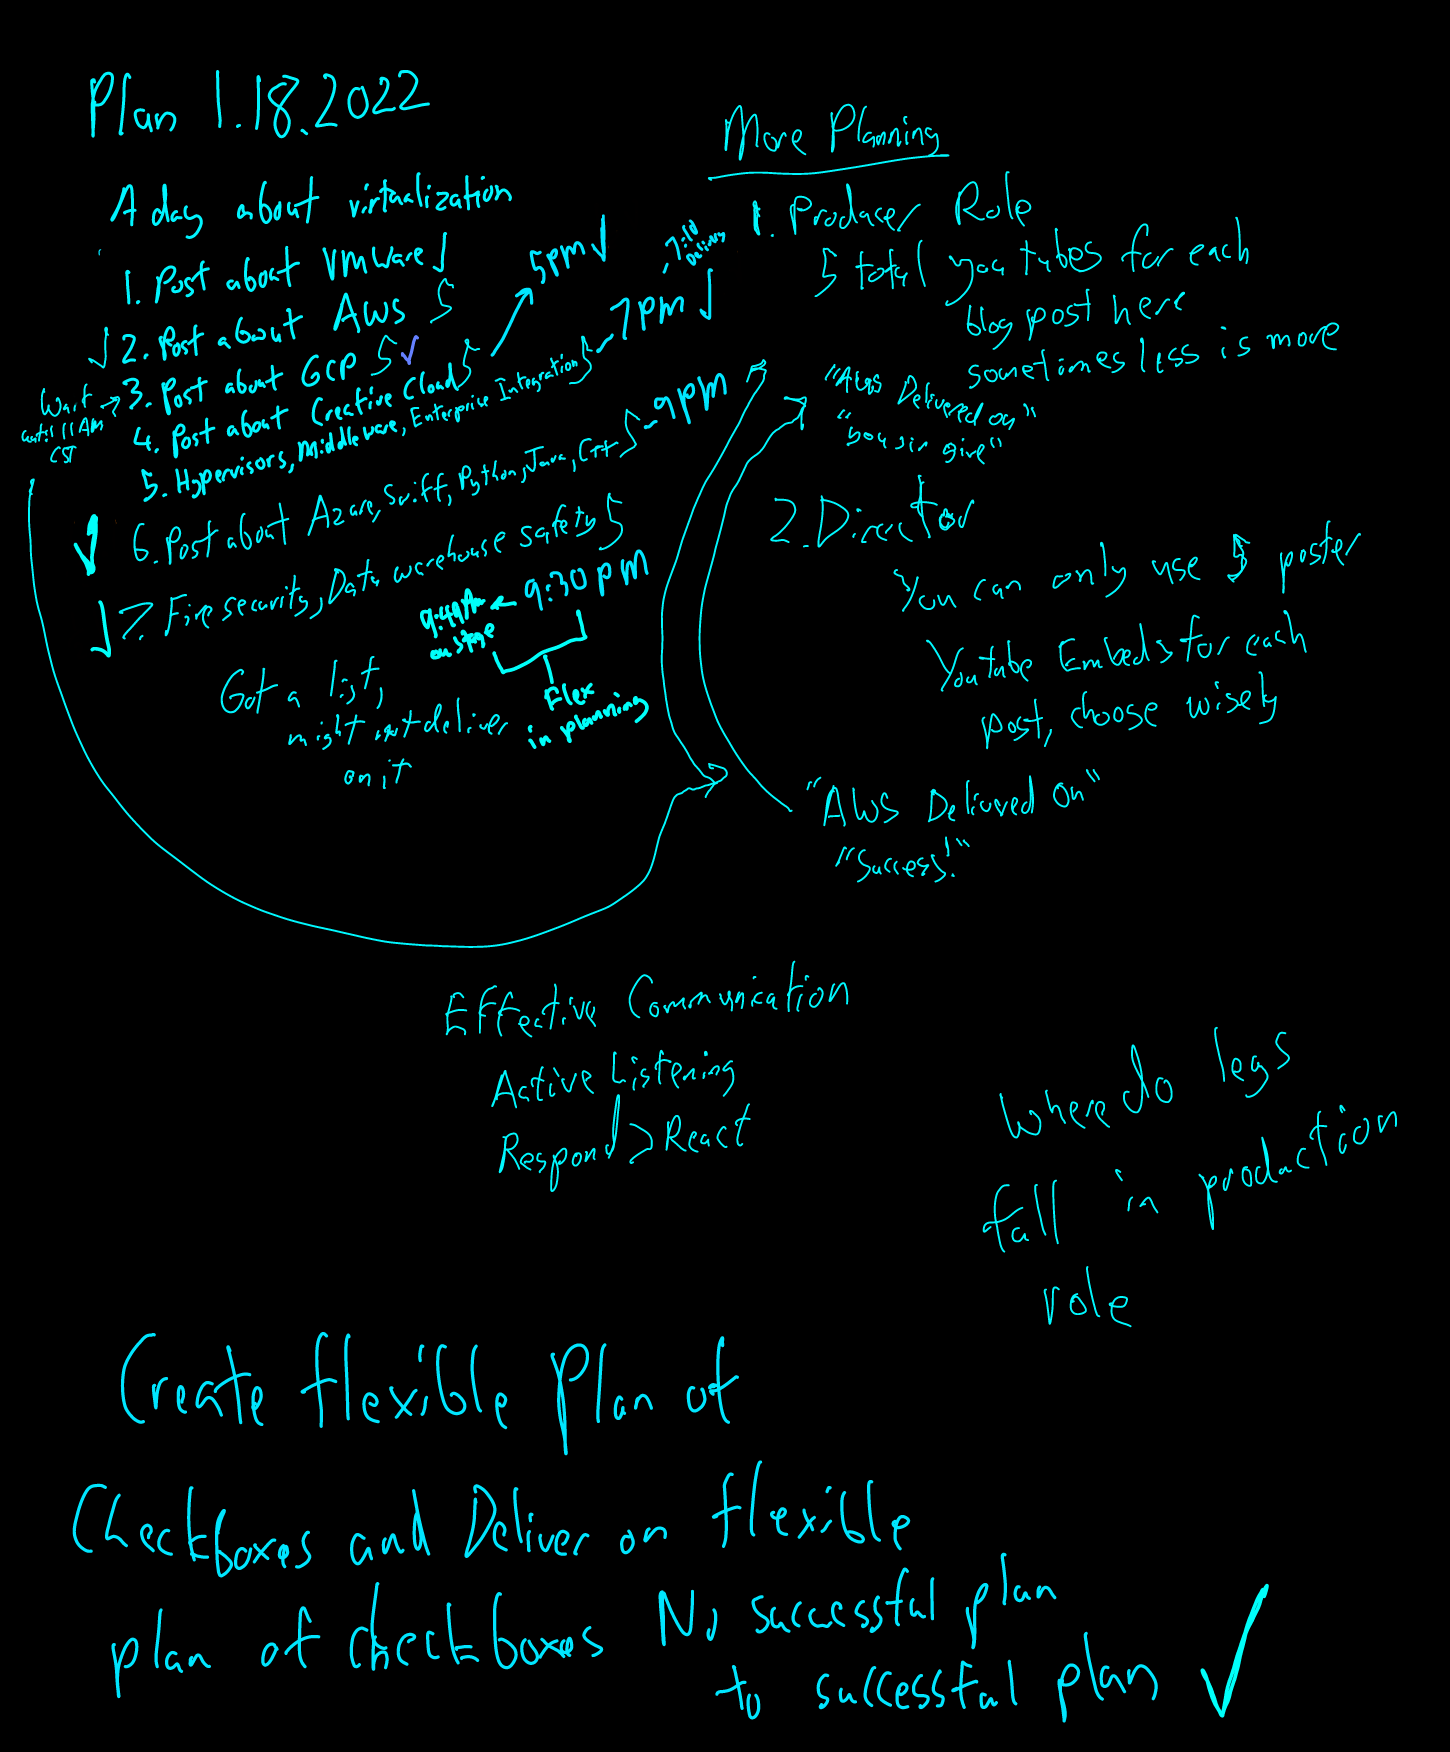 Plan 1.18.2022
A day about virtualization
1. Post about VMWare
2. Post about AWS 5
3. Post about GCP 5
Wait
until 11 AM
CST
4. Post about Creative Cloud 5
5pm
5. Hypervisors, Middleware, Enterprise Integration 5 - 7pm
7:10
Delivery
6. Post about Azure, Swift, Python, Java, C++ 5 - 9pm
7. Fire security, Data warehouse safety 5
9:30 PM
9:49
on stage
Flex
in planning
Got a list,
might not deliver
on it
More Planning
1. Producer Role
5 total you tubes for each
blog post here
sometimes less is more
"AWS Delivered on"
give"
2. Director
You can only use 5 poster
Youtube Embeds for each
post, choose wisely
"AWS Delivered On"
"Success!"
Effective Communication
Active Listening
Respond > React
Where do legs
fall in production
role
Create flexible Plan of
Checkboxes and Deliver on flexible
plan of checkboxes
No successful plan
to successful plan